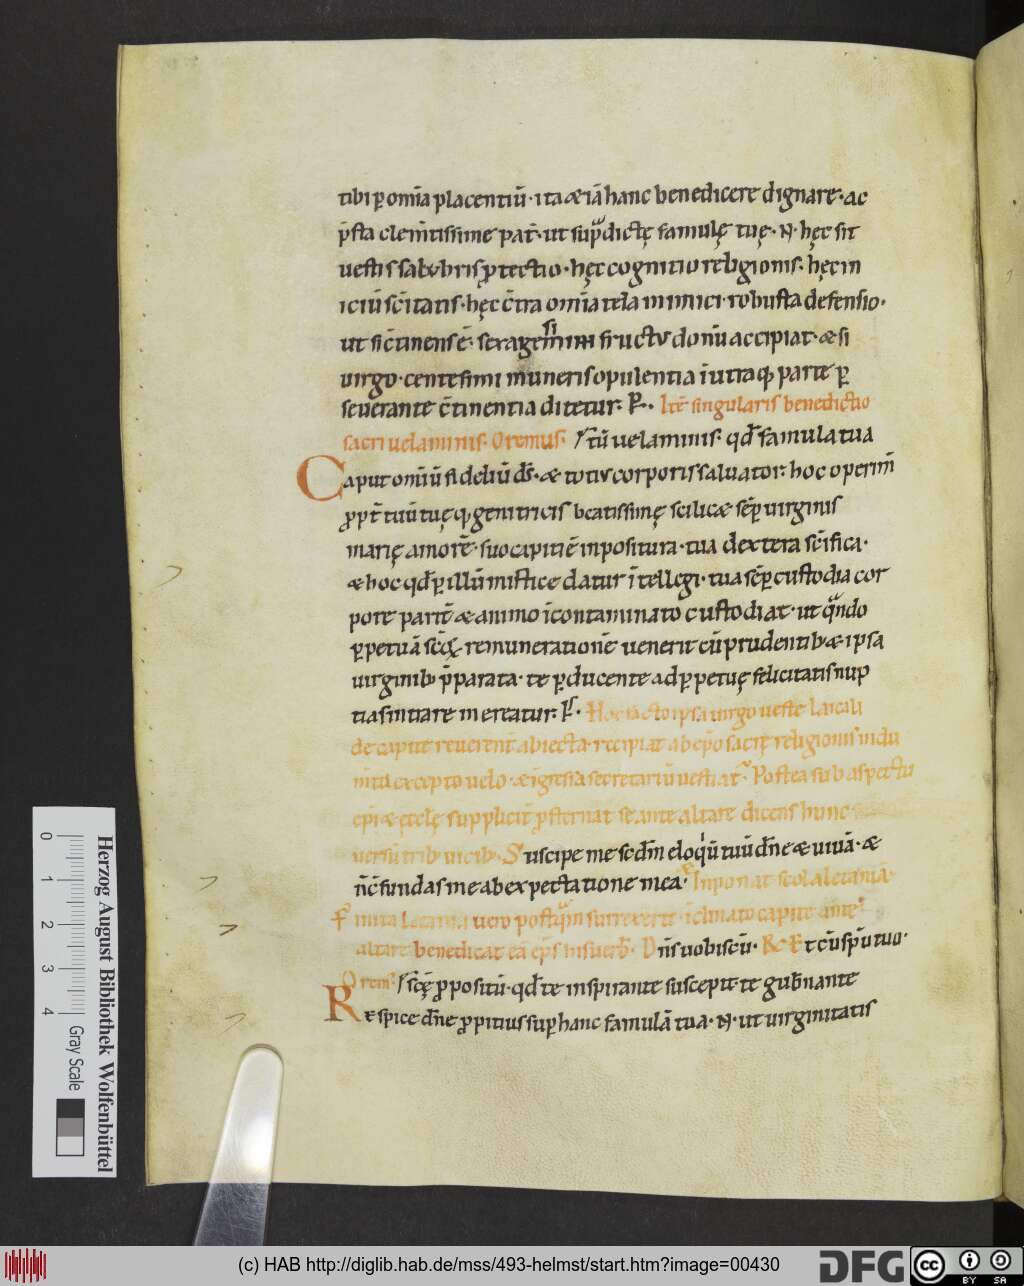 tibi ꝑ omīa placentiū· ita & iā hanc benedicere dignare· ac
p̄sta clem̄tissime pat̄· ut sup͛dictę famulę tuę· N· hęc sit
uestis salubris ꝓtectio· hęc cognitio religionis· hęc in
iciū sc̄itatis· hęc c̄tra omīa tela inimici· robusta defensio·
ut si c̄tinens ē· sexagesimi fructu donū accipiat· & si
uirgo· centesimi muneris opulentia ī utraq; parte ꝑ
seuerante c̄tinentia ditetur· P̄· Itē singularis benedictio
sacri uelaminis· Oremus· istū uelaminis· qd̄ famula tua
Caput omiū fideliū ds̄· & totius corporis saluator· hoc operim̄
ꝓpt̄ tuū tuęq; genitricis beatissimę scilic& sēp uirginis
marię amorē· suo capiti ē inpositura· tua dextera sc̄ifica·
& hoc qd̄ ꝑ illū mistice datur ītellegi· tua sēp custodia cor
pore parit̄ & animo īcontaminato custodiat· ut q̄ndo
ꝑpetuā sc̄oꝝ remunerationē uenerit cū prudentib; & ipsa
uirginib; p̄parata· te ꝑducente ad ꝑpetuę felicitatis nup
tias intrare mereatur· P̄· Hoc facto ipsa uirgo ueste laicali
de capite reuerent̄ abiecta· recipiat ab ep̄o sacrę religionis indu
m̄ta excepto uelo· & īgressa secretariū uestiat̄· Postea sub aspectu
ep̄i & ęcclę supplicit̄ ꝓsternat se ante altare dicens hunc
uersū trib; uicib;· Suscipe me sedm̄ eloq̄ū tuū dn̄e & uiuā· &
n̄ c̄fundas me ab expectatione mea· Inponat scola letaniā·
Finita letania uero postq̄m surrexerit īclinato capite ante
altare benedicat eā ep̄s his uerb̄· Dn̄s uobiscū· R& Et cū sp̄u tuo·
Orem̄ sc̄ę ꝓpositū· qd̄ te inspirante suscepit· te gub̄nante
Respice dn̄e ꝓpitius sup hanc famulā tuā· N· ut uirginitatis
0 1 2 3 4
Gray Scale
Herzog August Bibliothek Wolfenbüttel
(c) HAB http://diglib.hab.de/mss/493-helmst/start.htm?image=00430
DFG
cc BY SA